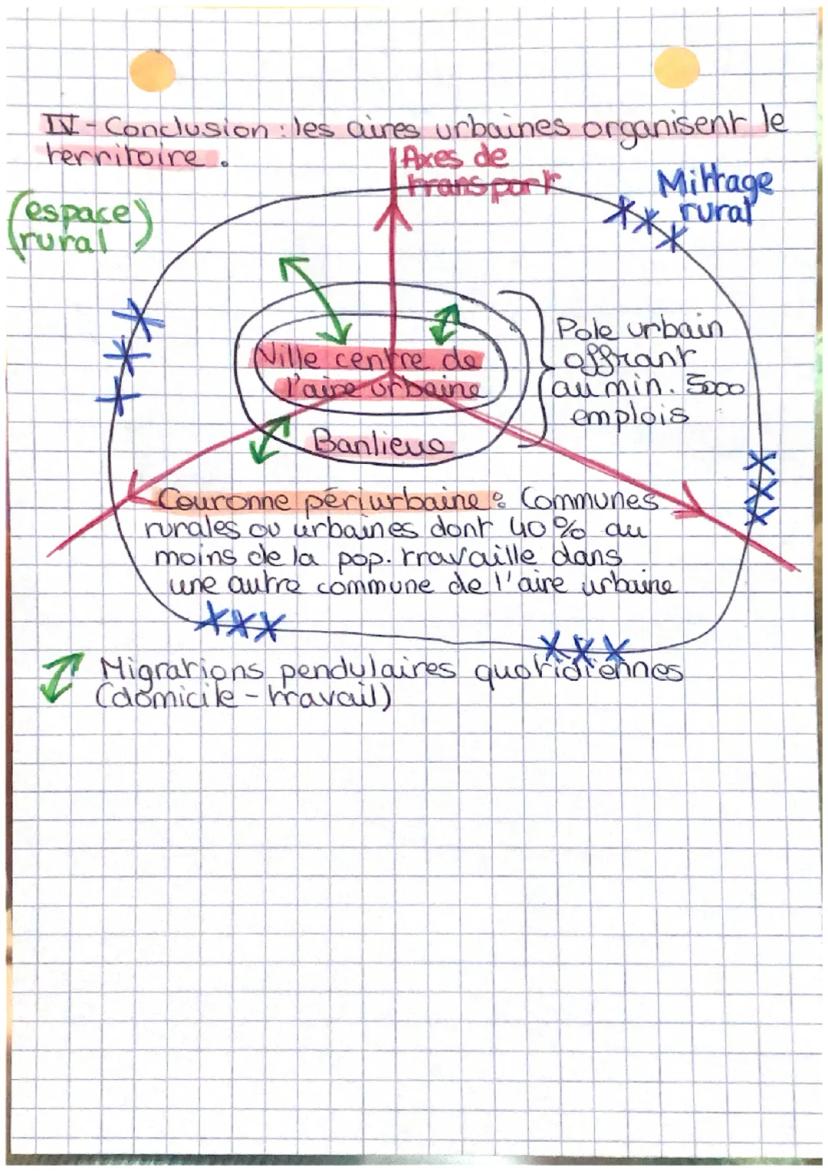 IV - Conclusion : les aires urbaines organisent le
territoire.
Axes de
transport
Mittage
rural
(espace
rural)
Ville centre de
l'aire urbaine
Pole urbain
offrant
au min. 5000
emplois
Banlieue
Couronne périurbaine : Communes
rurales ou urbaines dont 40% au
moins de la pop. travaille dans
une autre commune de l'aire urbaine
Migrations pendulaires quotidiennes
(domicile - travail)